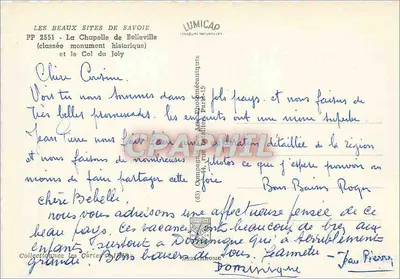 LES BEAUX SITES DE SAVOIE
PP 2551 - La Chapelle de Belleville
(classée monument historique)
et le Col du Joly
LUMICAP
Chère Cousine
Vois tu nous sommes dans un joli pays et nous faisons de
très belles promenades. les enfants ont une mine superbe
Jean Pierre nous fait une détaillée de la région
et nous faisons de nombreuses photos ce que j'espère pouvoir au
moins de faire partager cette joie
Bons Baisers Roger
chère Bebelle
nous vous adressons une affectueuse pensée de ce
beau pays. Ces vacances font beaucoup de bien aux
enfants, surtout à Dominique qui a terriblement
grandi. Bons baisers de tous. Jeannette - Jean Pierre
Dominique
CPAPHIL
Collectionnez les Cartes